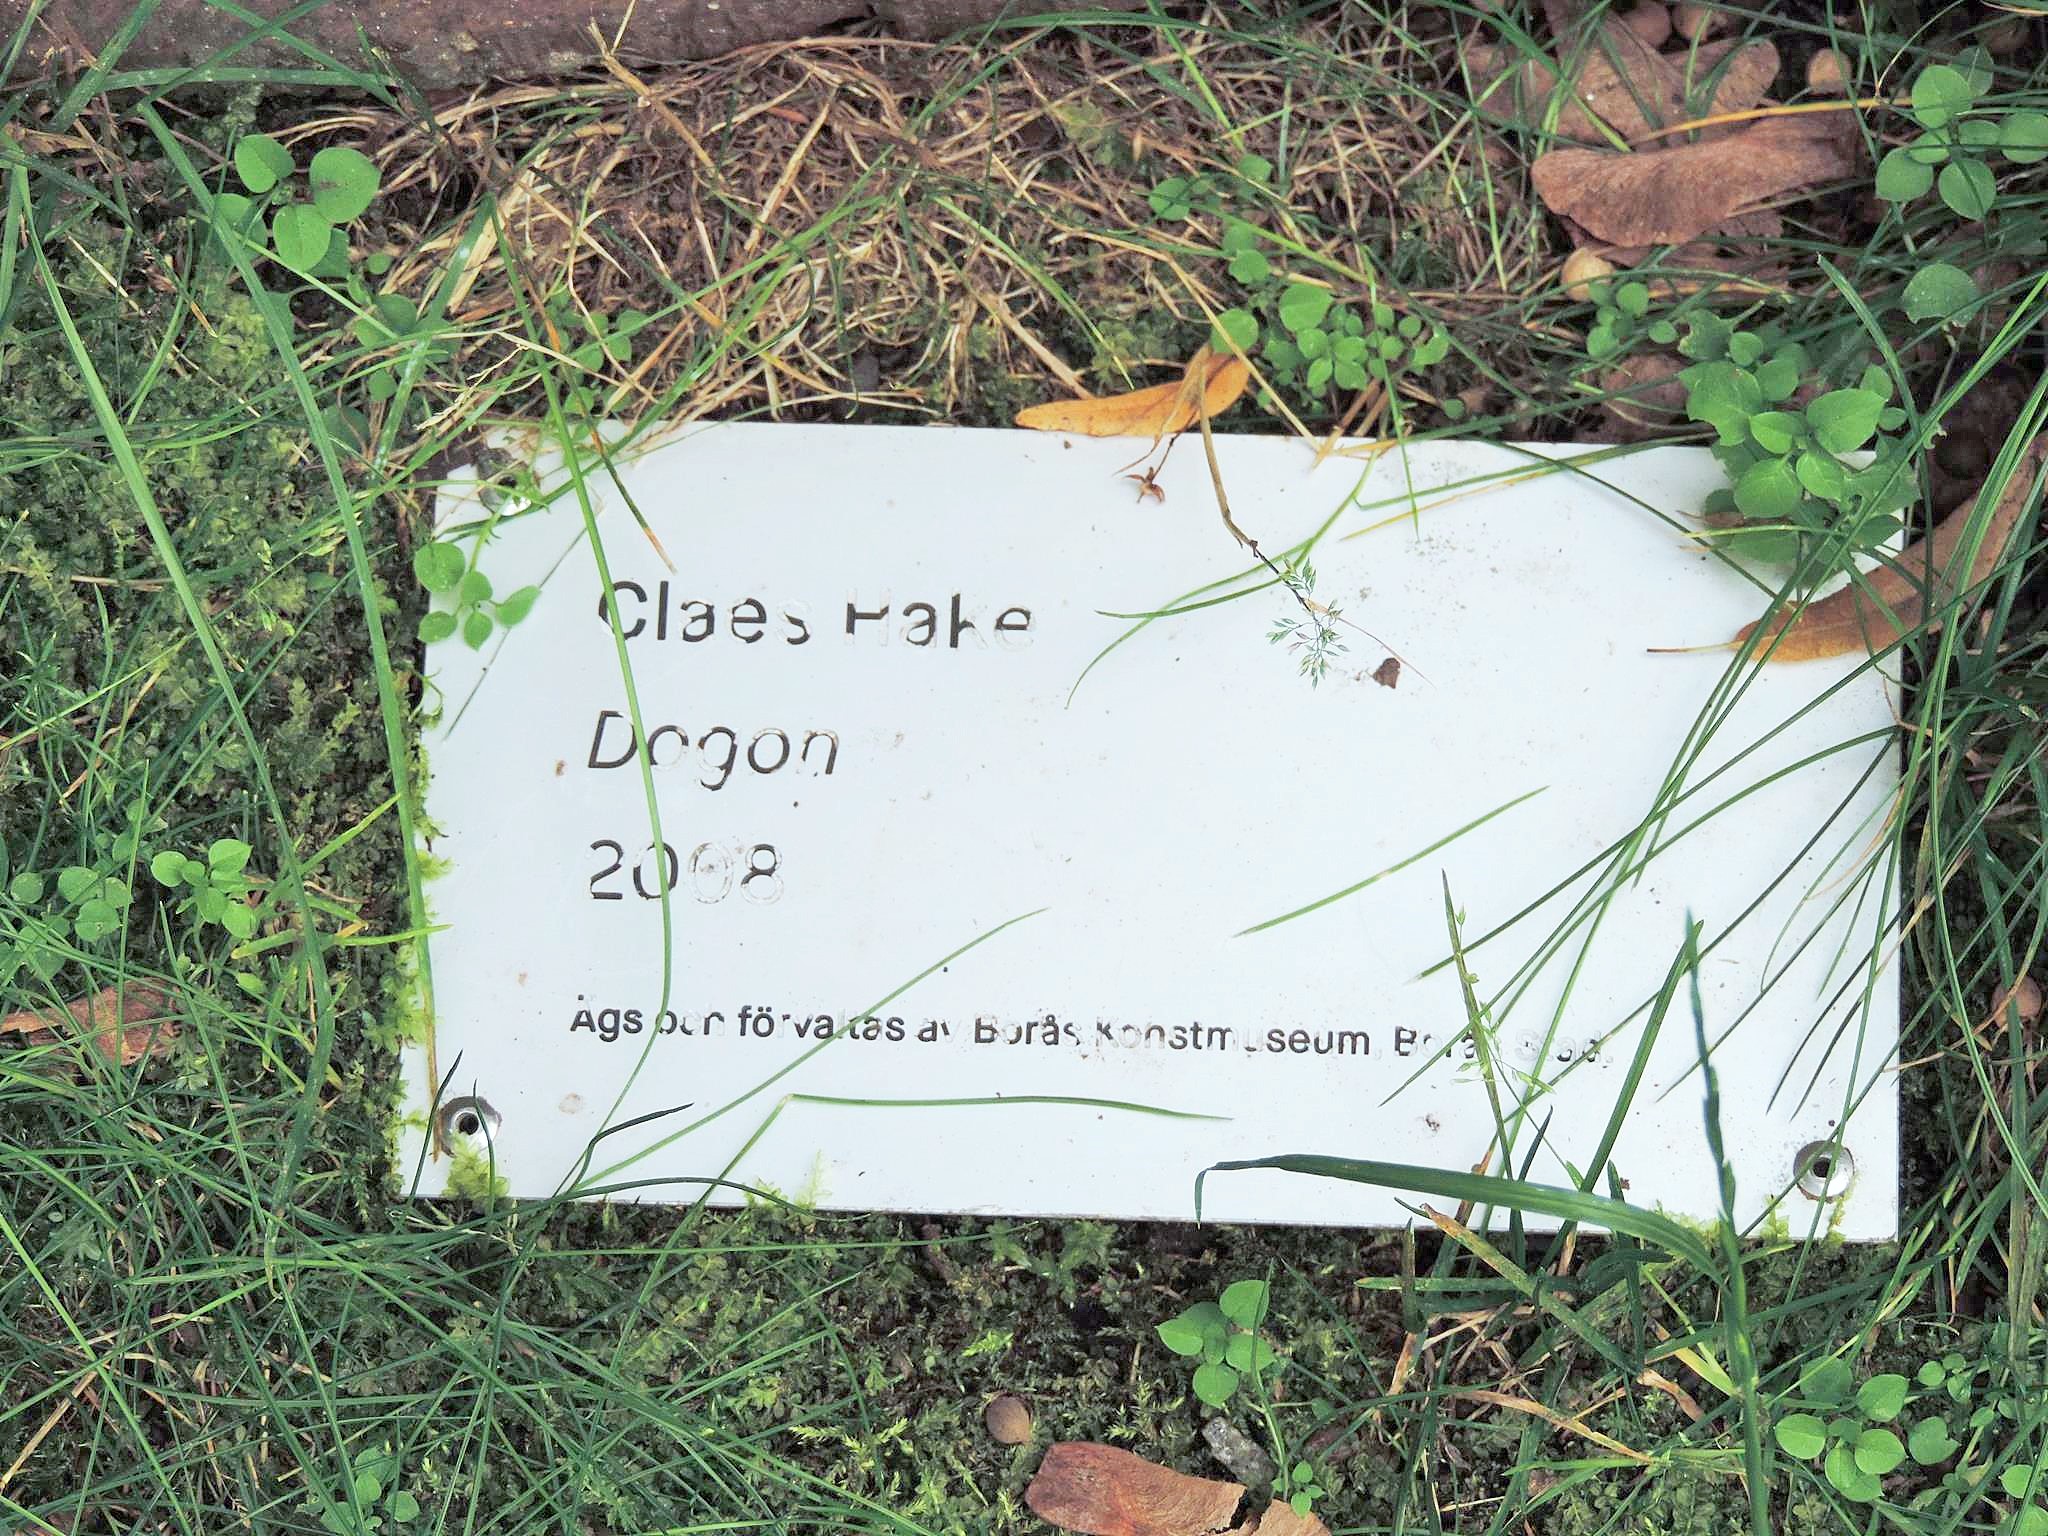 Claes Hake
Dogon
2008
Ägs och förvaltas av Borås Konstmuseum, Borås Stad.